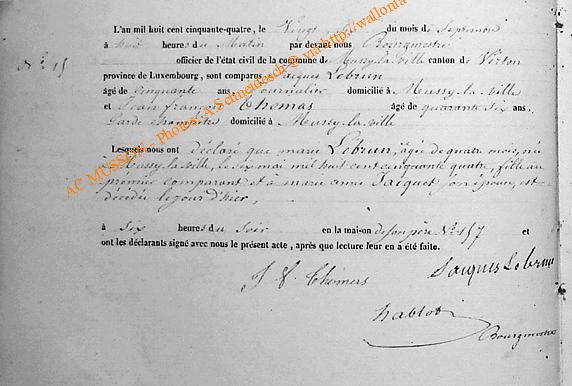 L'an mil huit cent cinquante-quatre, le Vingt du mois de Septembre
N° 15 à huit heures du Matin par devant nous Bourgmestre
officier de l'état civil de la commune de Mussy-la-Ville canton de Virton
province de Luxembourg, sont comparus Jacques Lebrun
âgé de Cinquante ans, Journalier domicilié à Mussy-la-ville
et Jean françois Thomas âgé de quarante Six ans,
Garde Champêtre domicilié à Mussy-la-ville
Lesquels nous ont déclaré que marie Lebrun, âgée de quatre mois, née
à Mussy-la-ville, le six mai mil huit cent cinquante quatre, fille du
premier comparant et à marie anne Jacquet son épouse, est
décédée le jour d'hier,
à Six heures du Soir en la maison de son père N° 157 et
ont les déclarants signé avec nous le présent acte, après que lecture leur en a été faite.
J F Thomas
Jacques Lebrun
Bourgmestre
AC MUSSON - Photos: A Schneidesch @ via http://wallonia